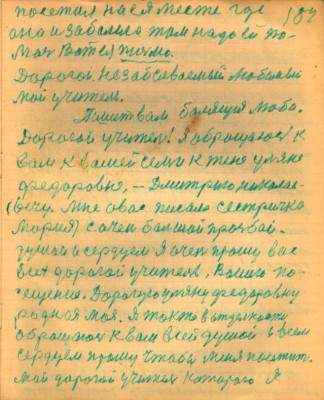 посетил насяместе где 187
она и забалела там надо ей по-
мач Вот ея писмо.
Дорогой. Незабываемый любимый
мой учитель.
Пишет вам болящия люба.
Дорогой учител! Я обращаюс к
вам к вашей семьи к Тене ульяне
федоровне, — Дмитрию николае-
(вечу. Мне овас писала сестричка
Мария) с очен балшой прозбай.
душой и сердцем Я очен прошу вас
всех дорогой учитель, Вашего по-
сещения. Дорогую ульяну федоровну
родная моя. Я
обращаюс к вам всей душой и всем
сердцем прошу чтобы меня посетит.
Мой дорогой учитель которого Я